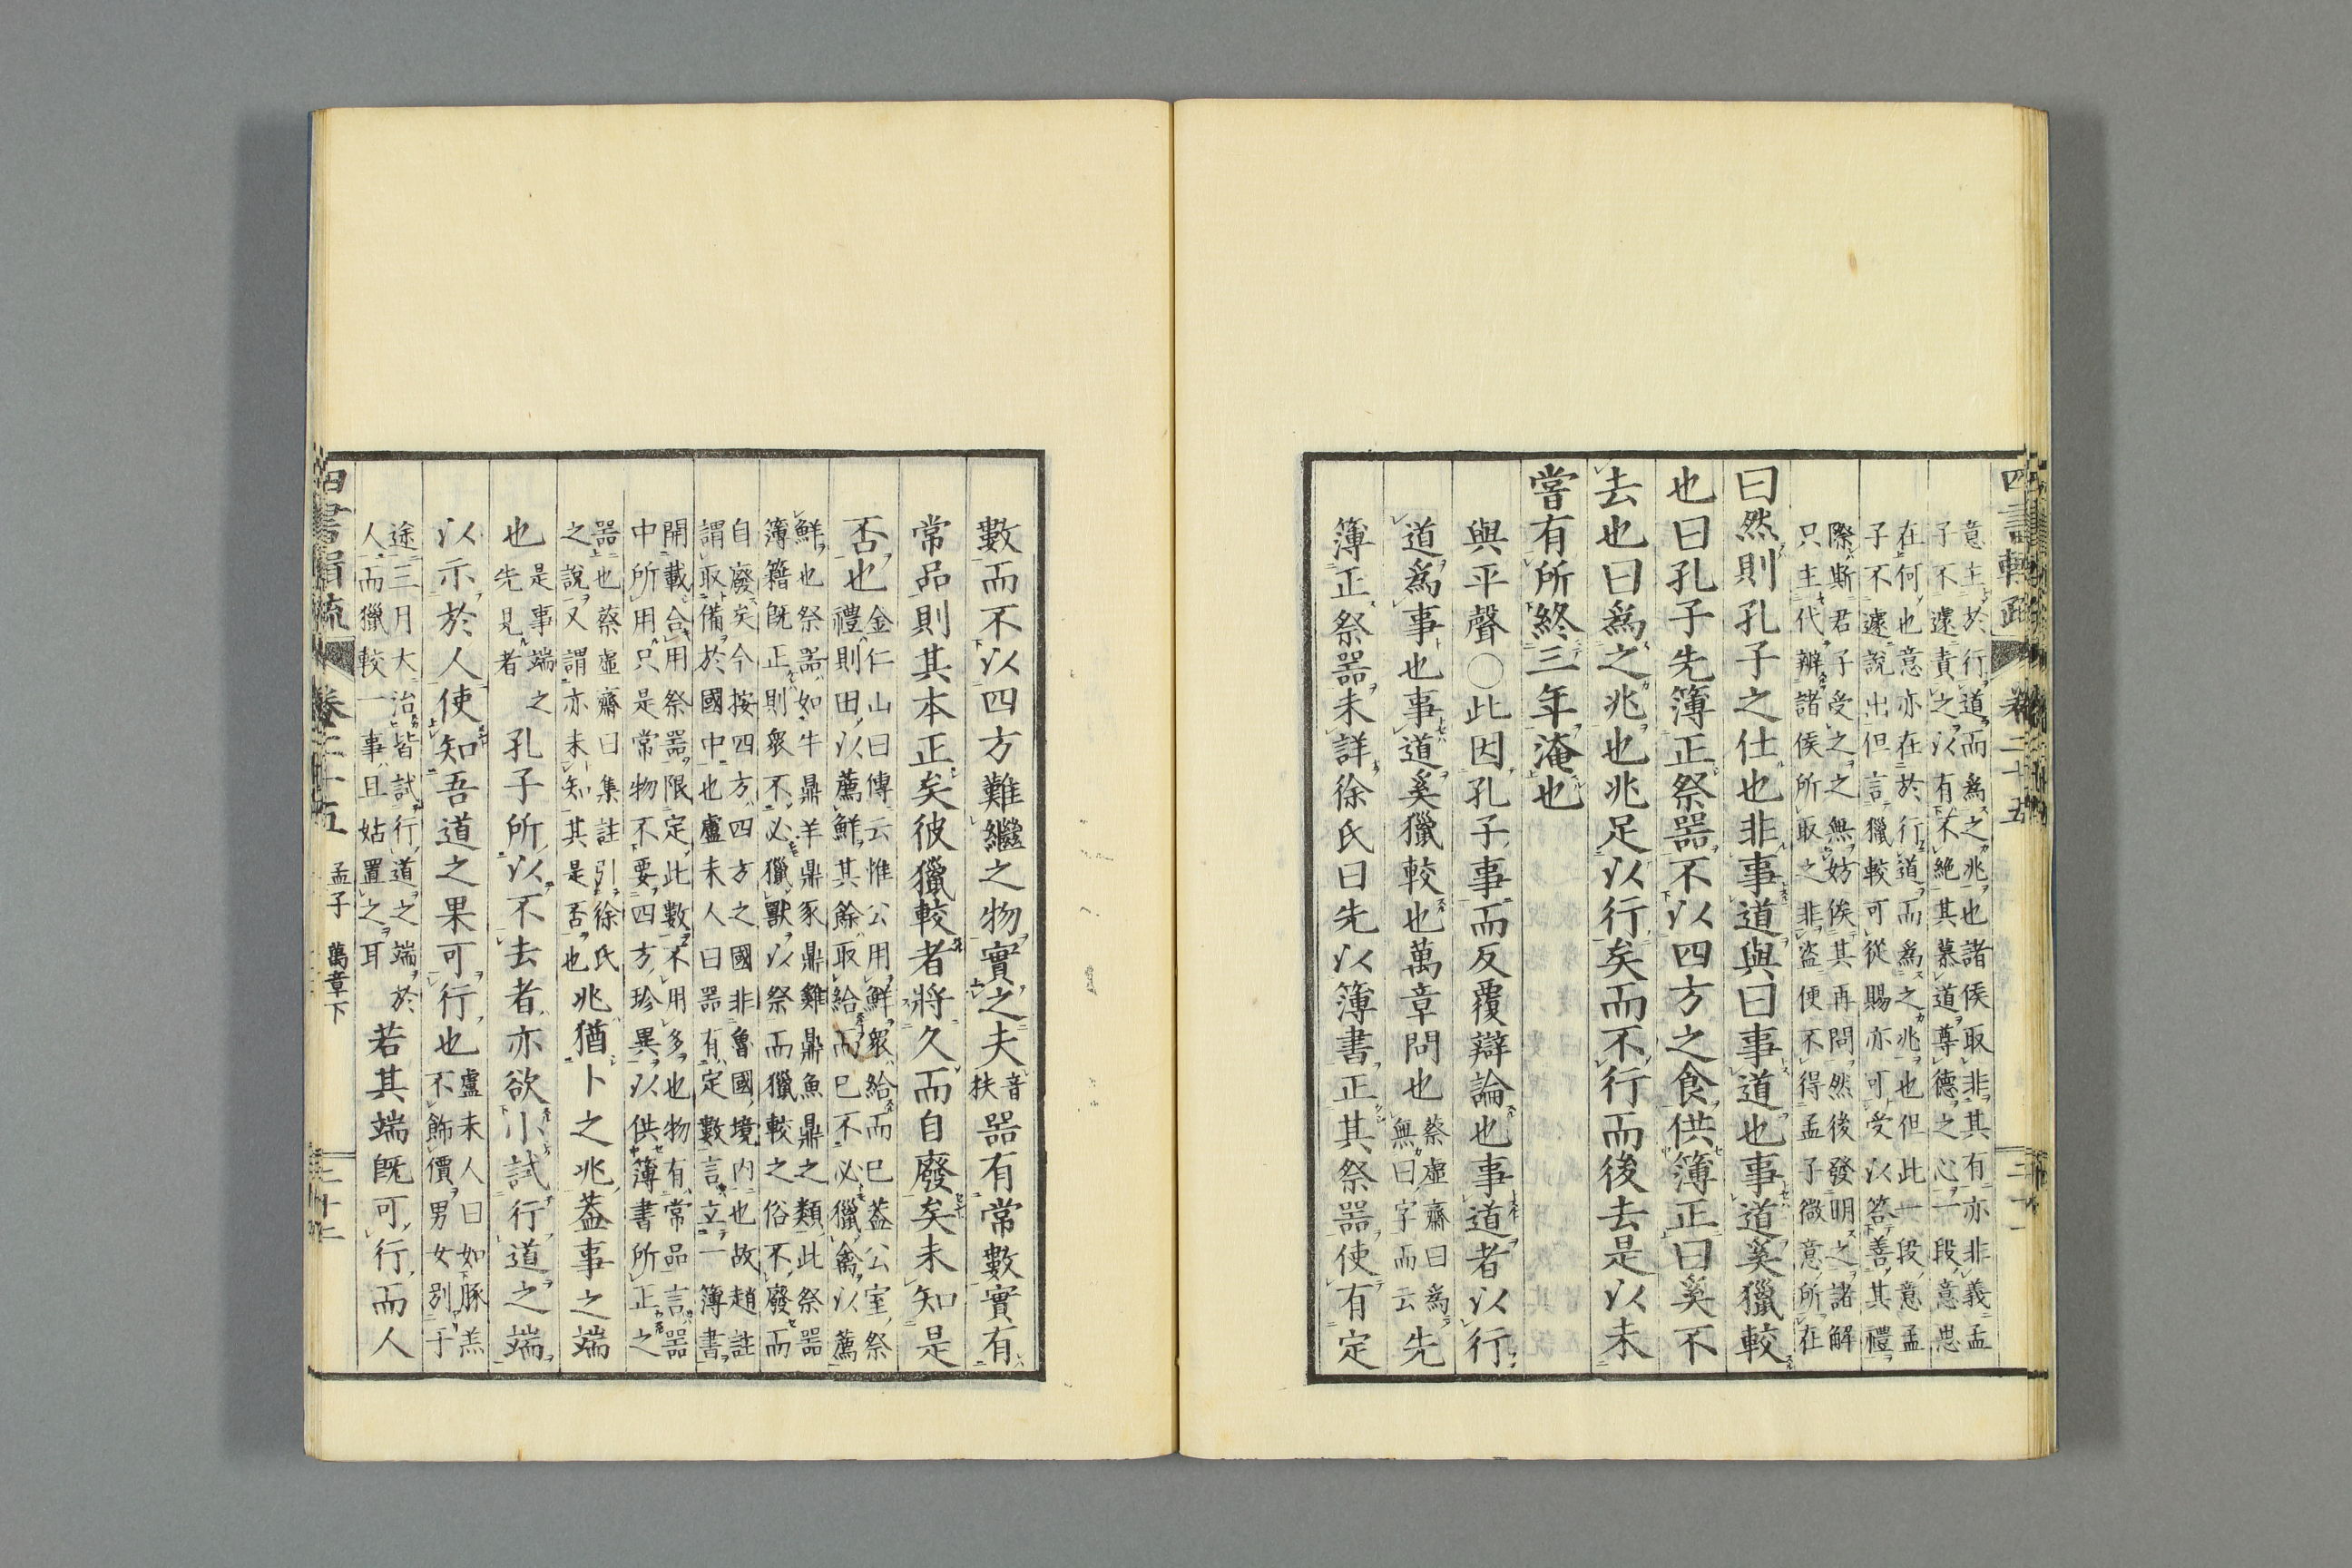 四書輯疏 卷二十五
意主於行道而爲之兆也諸侯取非其有亦非義孟
子不遽責之以有不絶其慕道尊德之心一段意思
在何也意亦在於行道而爲之兆也但此一段意孟
子不遽說出但言獵較可從賜亦可受以答善其禮
際斯君子受之之無妨俟其再問然後發明之諸解
只主代辨諸侯所取之非盜便不得孟子微意所在
曰然則孔子之仕也非事道與曰事道也事道奚獵較
也曰孔子先簿正祭器不以四方之食供簿正曰奚不
去也曰爲之兆也兆足以行矣而不行而後去是以未
嘗有所終三年淹也
與平聲○此因孔子事而反覆辯論也事道者以行
道爲事也事道奚獵較也萬章問也蔡虛齋曰爲無曰字而云先
簿正祭器未詳徐氏曰先以簿書正其祭器使有定
數而不以四方難繼之物實之夫音扶器有常數實有
常品則其本正矣彼獵較者將久而自廢矣未知是
否也金仁山曰傳云惟公用鮮衆給而已蓋公室祭
禮則田以薦鮮其餘取給而已不必獵禽以薦
鮮也祭器如牛鼎羊鼎豕鼎雞鼎魚鼎之類此祭器
簿籍既正則衆不必獵獸以祭而獵較之俗不廢而
自廢矣今按四方四方之國非魯國境內也故趙註
謂取備於國中也盧未人曰器有定數言立一簿書
開載合用祭器限定此數不用多也物有常品言器
中所用只是常物不要四方珍異以供簿書所正之
器也蔡虛齋曰集註引徐氏
之說又謂亦未知其是否也兆猶卜之兆蓋事之端
也是事端之先見者孔子所以不去者亦欲小試行道之端
以示於人使知吾道之果可行也盧未人曰如豚羔不飾價男女別于
途三月大治皆試行道之端於
人而獵較一事且姑置之耳若其端既可行而人
四書輯疏 卷二十五 孟子 萬章下 二十二